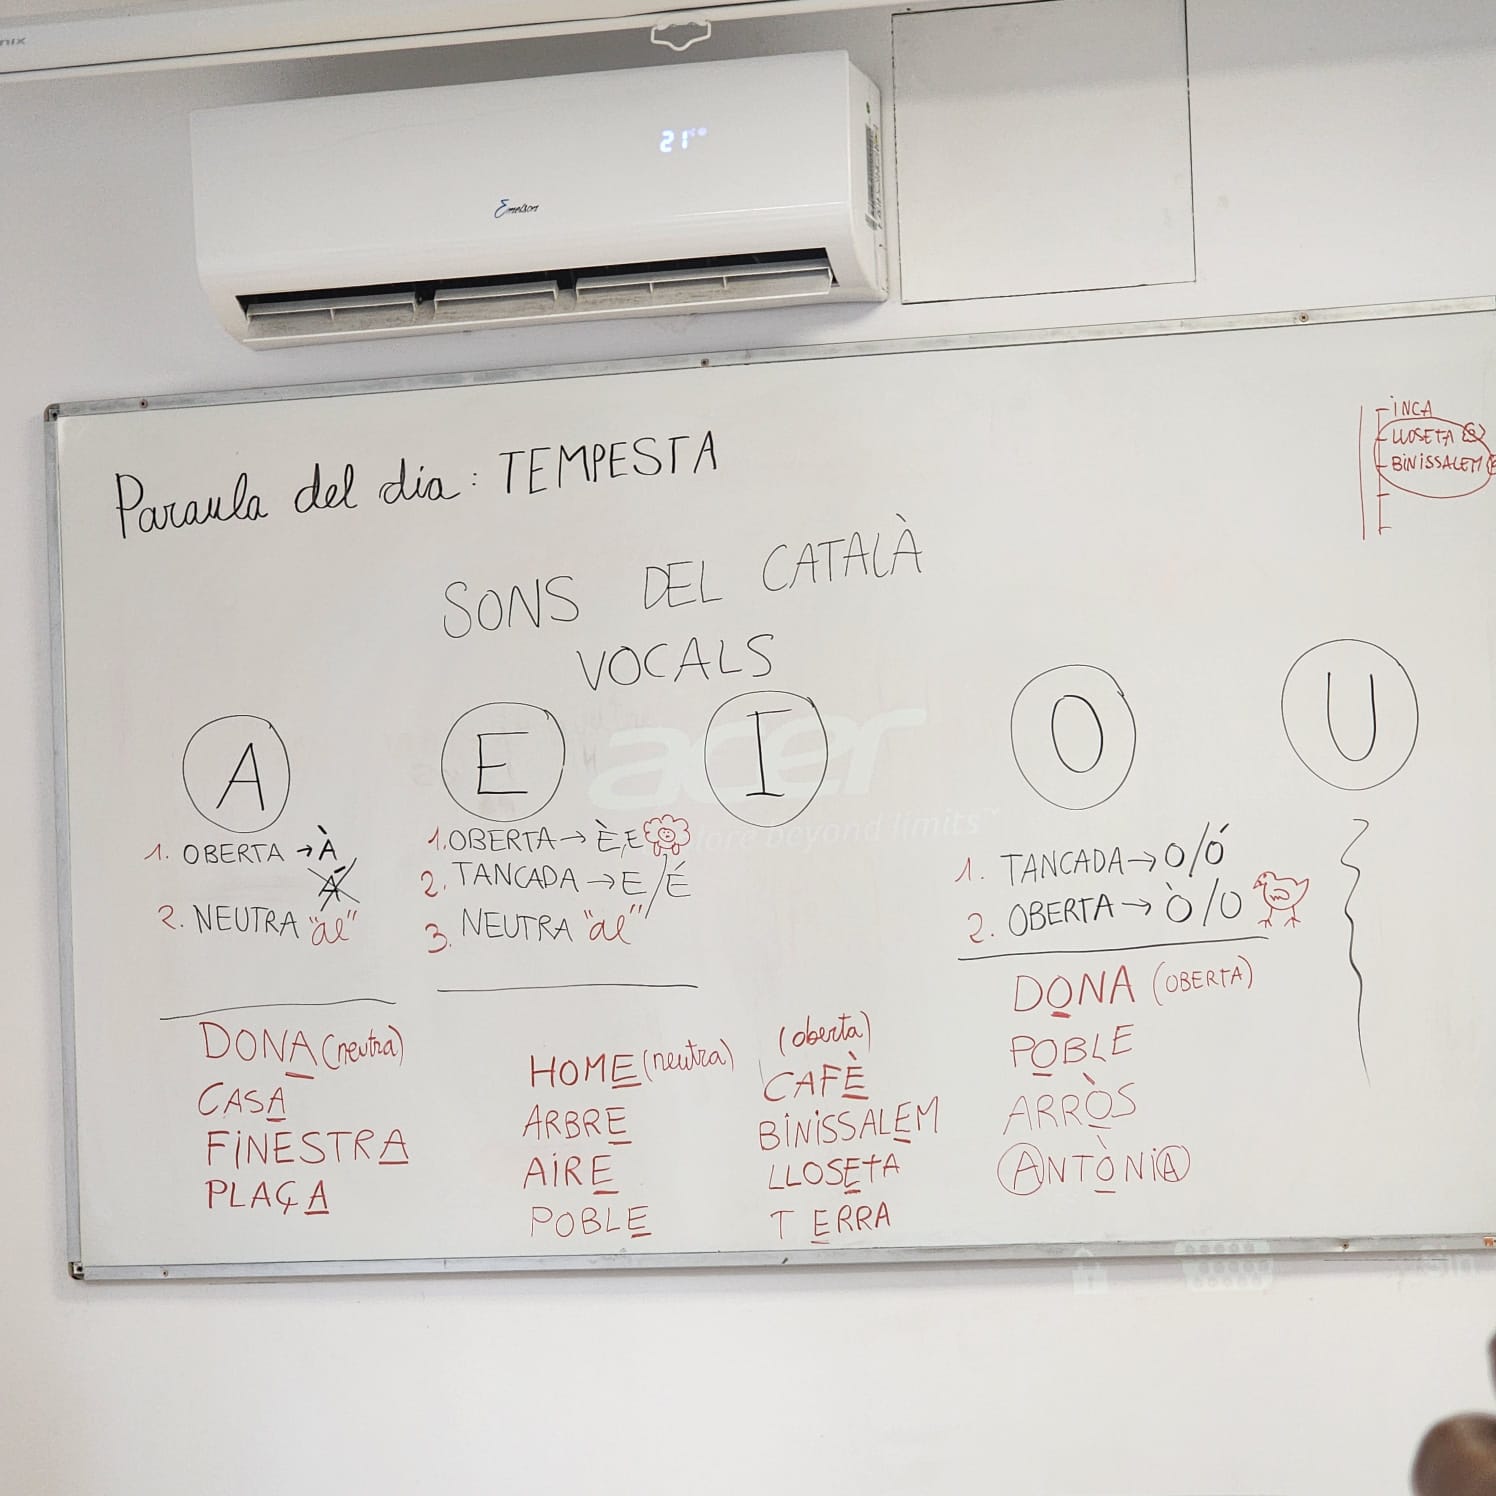 21°
Emelson
INCA
LLOSETA
BINISSALEM
Paraula del dia: TEMPESTA
SONS DEL CATALÀ
VOCALS
A
1. OBERTA → À
Á
2. NEUTRA "äe"
DONA (neutra)
CASA
FINESTRA
PLAÇA
E
1. OBERTA → È, E
2. TANCADA → E/É
3. NEUTRA "äe"
HOME (neutra)
ARBRE
AIRE
POBLE
I
(oberta)
CAFÈ
BINISSALEM
LLOSETA
TERRA
O
1. TANCADA → O/Ó
2. OBERTA → Ò/O
DONA (OBERTA)
POBLE
ARRÒS
ANTÒNIA
U
acer
explore beyond limits™